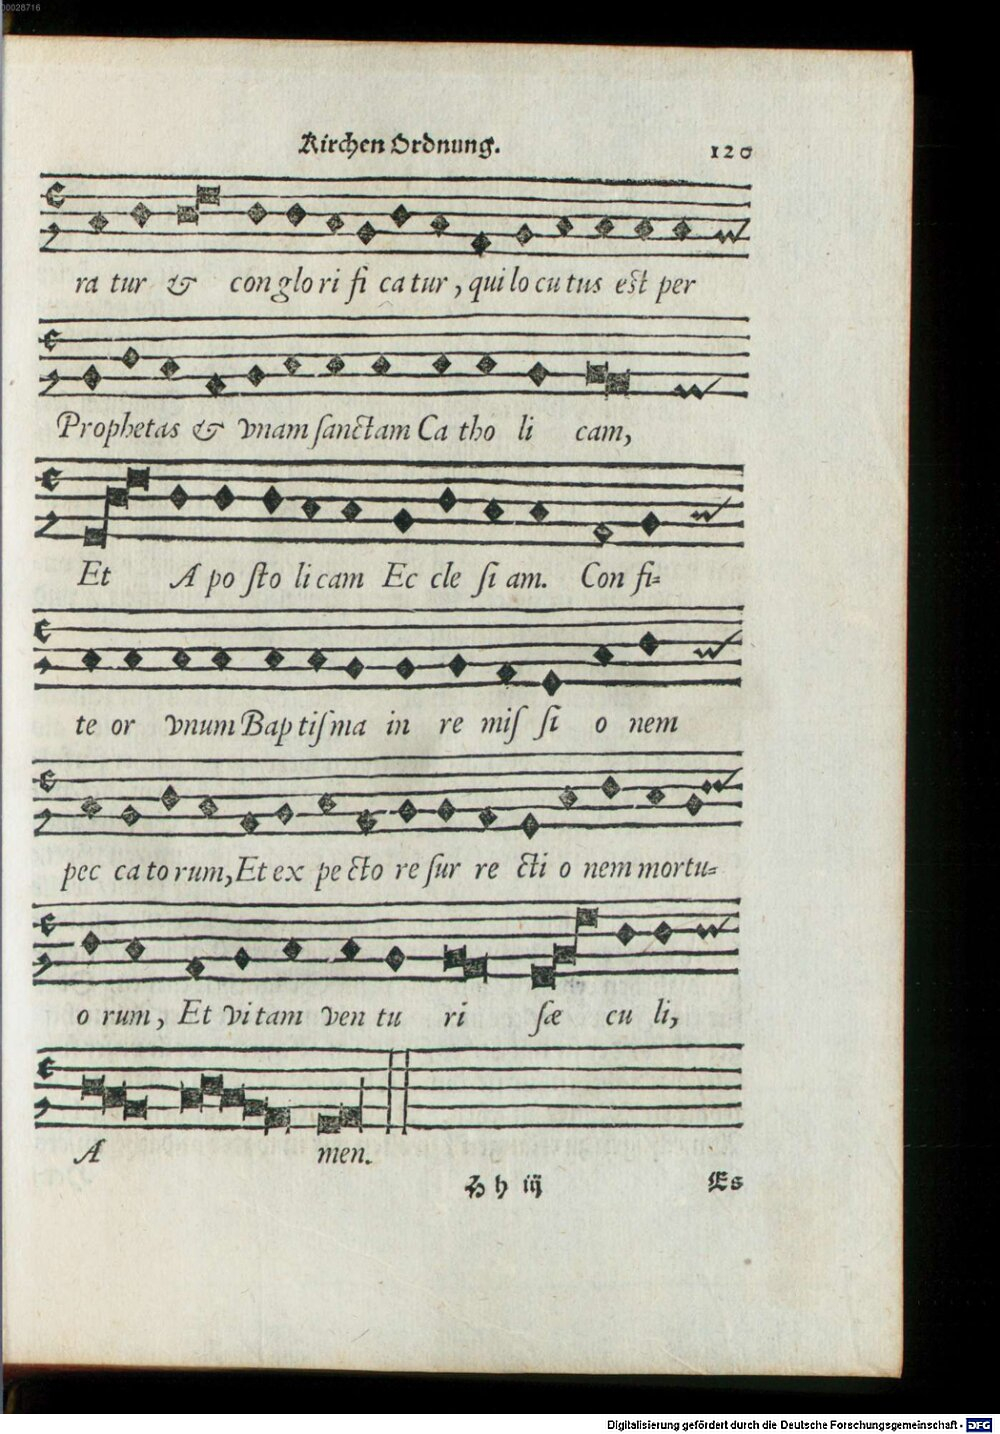 00028716
Kirchen Ordnung.
120
ra tur & con glo ri fi ca tur, qui lo cu tus est per
Prophetas & vnam ſanctam Ca tho li cam,
Et A po ſto li cam Ec cle ſi am. Con fi=
te or vnum Bap tiſ ma in re miſ ſi o nem
pec ca to rum, Et ex pe cto re ſur re cti o nem mortu=
o rum, Et vi tam ven tu ri ſæ cu li,
A men.
H h iij Es
Digitalisierung gefördert durch die Deutsche Forschungsgemeinschaft - DFG